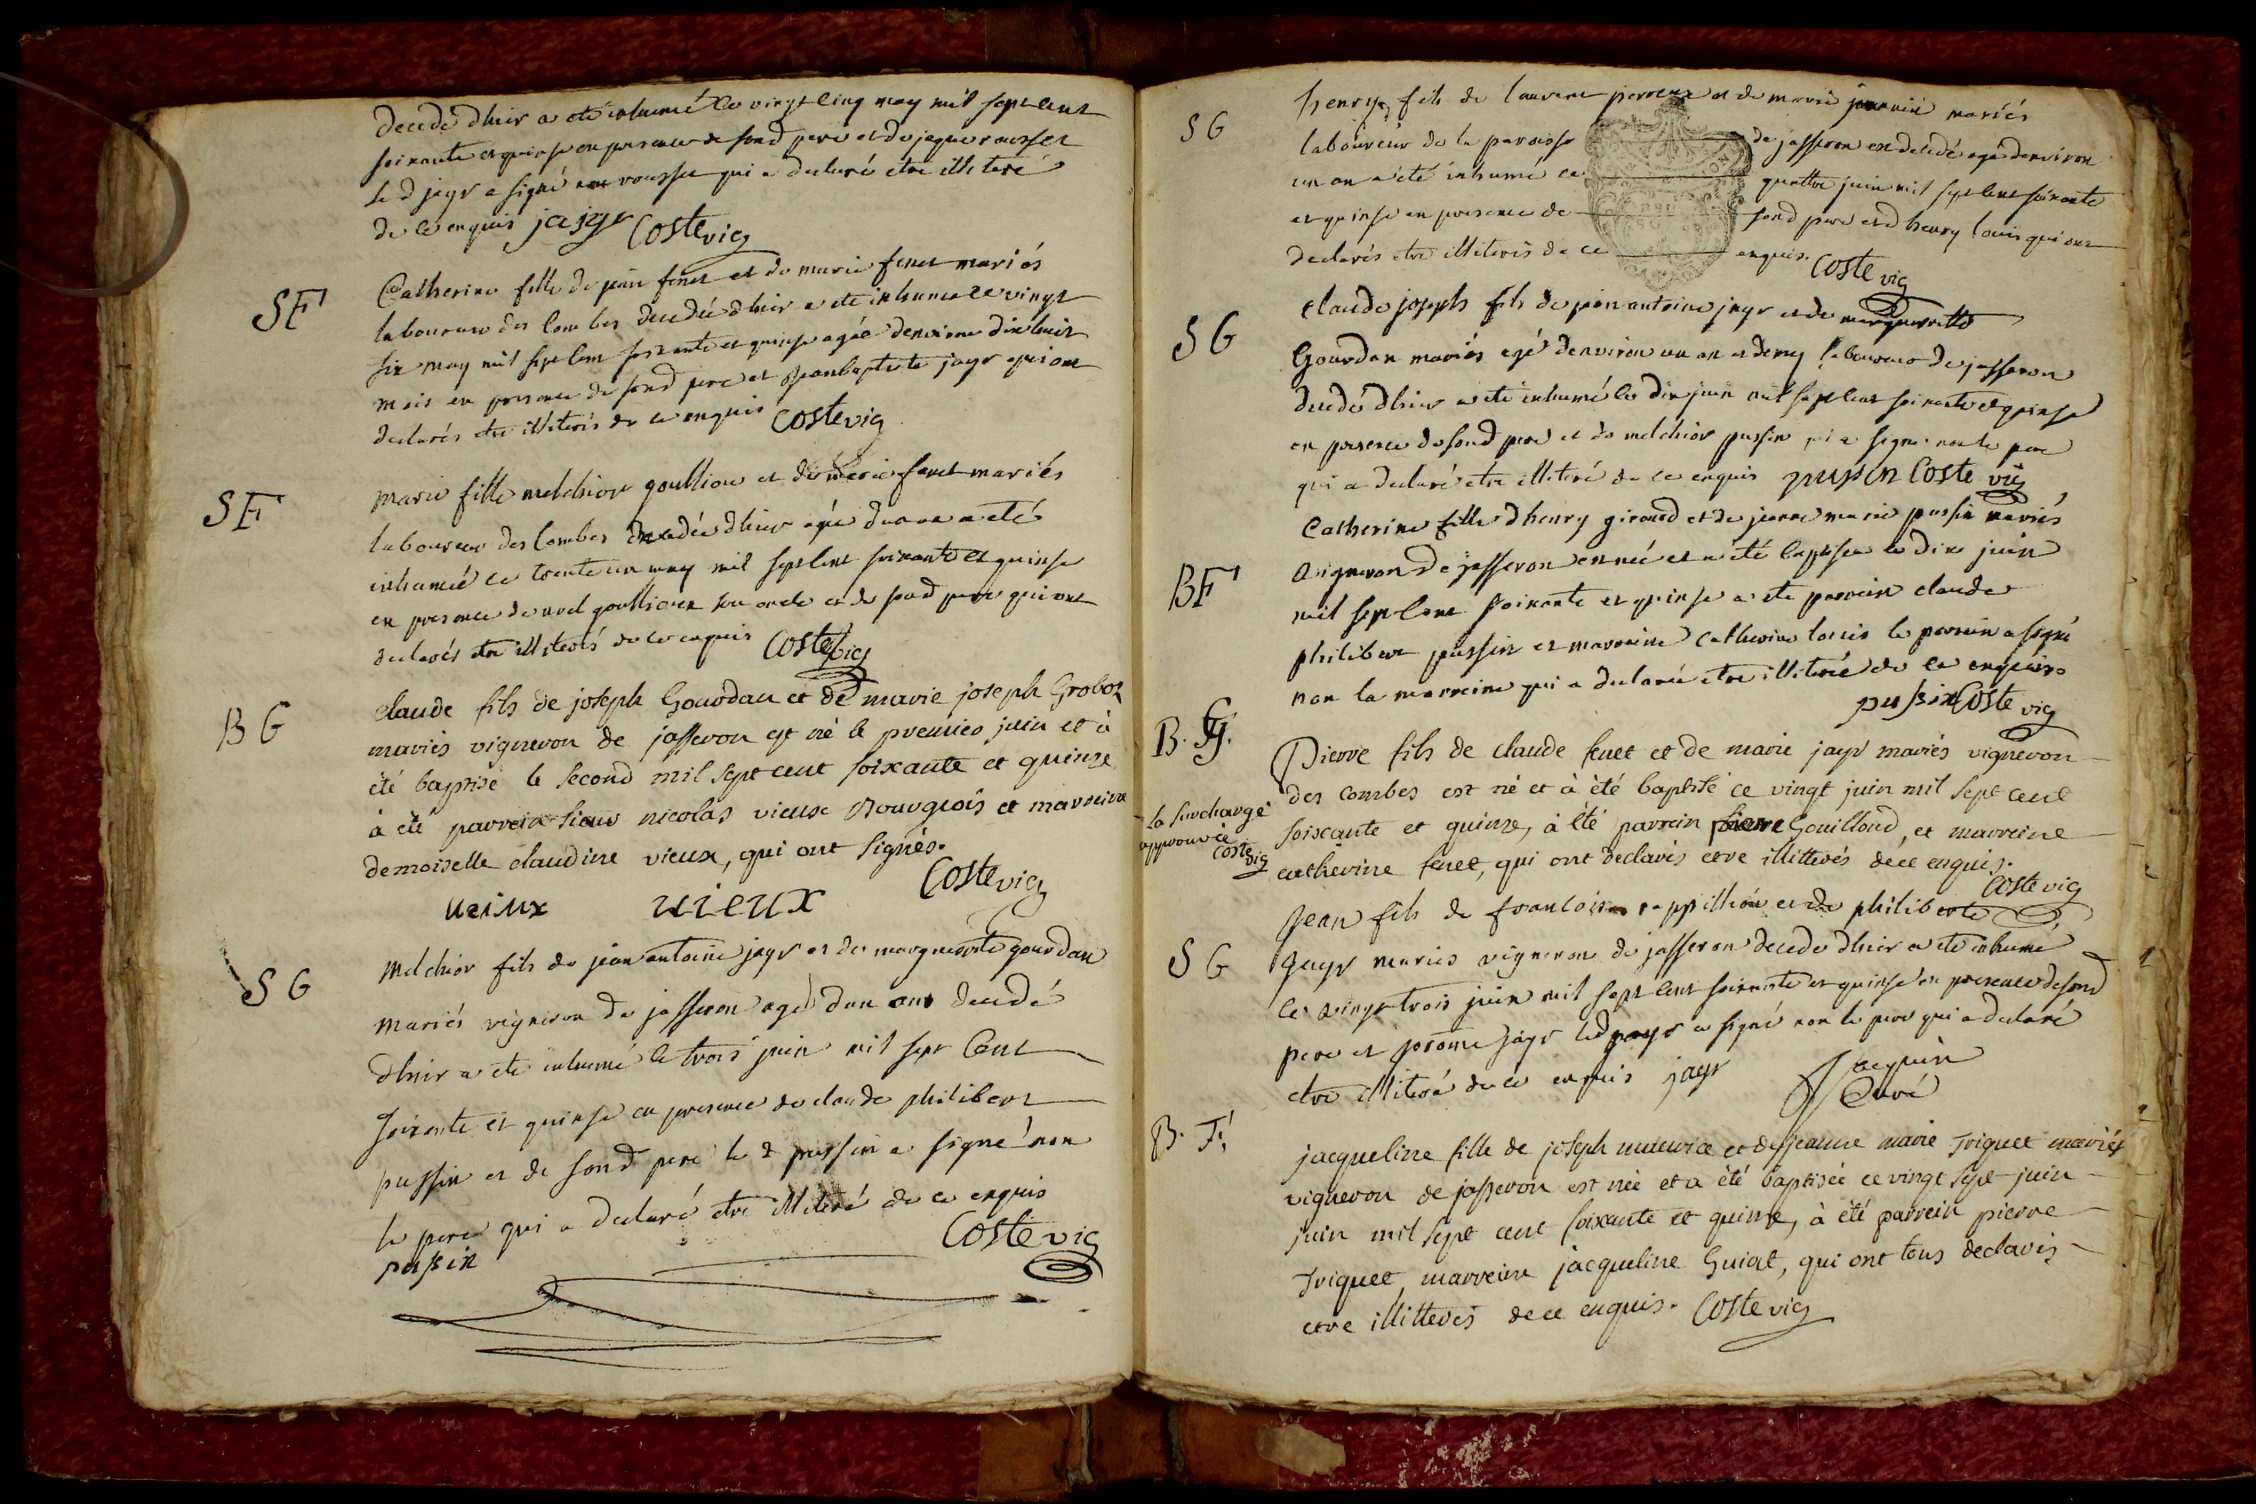 decedé d'hier a eté inhumé le vingt cinq may mil sept cent
soixante et quinse en presence de son d pere et de jaque rousset
le d jayr a signé non rousset qui a declaré etre illiteré
de ce enquis jajayr Coste vic
SF
Catherine fille de jean fenet et de marie fenet mariés
laboureur des Combes decedée d'hier a eté inhumée le vingt
six may mil sept cent soixante et quinse agée d'environ dix huit
mois en presence de son d pere et Jean baptiste jayr qui ont
declarés etre illiterés de ce enquis Coste vic
SF
marie fille melchior goullion et de marie fenet mariés
laboureur des Combes decedée d'hier agée d'un an a eté
inhumée ce trente un may mil sept cent soixante et quinse
en presence de noel goullion son oncle et de son d pere qui ont
declarés etre illiterés de ce enquis Coste vic
BG
claude fils de joseph Gourdan et de marie joseph Groboz
mariés vigneron de jasseron est né le premier juin et à
été baptisé le second mil sept cent soixante et quinze
à été parrein sieur nicolas vieux Bourgeois et marreine
demoiselle claudine vieux, qui ont signés.
vieux vieux Coste vic
SG
Melchior fils de jean antoine jayr et de marguerite gourdan
mariés vigneron de jasseron agé d'un an decedé
d'hier a eté inhumé le trois juin mil sept Cent
soixante et quinse en presence de claude philibert
pussin et de son d pere le d pussin a signé non
le pere qui a declaré etre illiteré de ce enquis
pussin Coste vic
SG
henry fils de laurent perreux et de marie mariés
laboureur de la paroisse de jasseron est decedé agé d'environ
un an a été inhumé ce quattre juin mil sept cent soixante
et quinse en presence de son d pere et d henry louis qui ont
declarés etre illiterés de ce enquis. Coste vic
SG
claude joseph fils de jean antoine jayr et de marguerite
Gourdan mariés agé d'environ un an et demy laboureur de jasseron
decedé d'hier a eté inhumé le dix juin mil sept cent soixante et quinse
en presence de son d pere et de melchior pussin qui a signé non le pere
qui a declaré etre illiteré de ce enquis pussin Coste vic
BF
Catherine fille d'henry giroud et de jeanne marie pussin mariés
vigneron de jasseron est née et a été baptisée le dix juin
mil sept Cent soixante et quinse a eté parrein claude
philibert pussin et marreine Catherine louis le parrein a signé
non la marreine qui a declaré etre illiterée de ce enquis
pussin Coste vic
B. G.
Pierre fils de claude fenet et de marie jayr mariés vigneron
des combes est né et à été baptisé ce vingt juin mil sept cent
soixante et quinze, à été parrein pierre Gouilloud, et marreine
catherine fenet, qui ont declarés etre illitterés de ce enquis.
La surcharge
approuvée
Coste vic
Coste vic
SG
Jean fils de francois rappillion et de philiberte
jayr mariés vigneron de jasseron decedé d'hier a eté inhumé
le vingt trois juin mil sept cent soixante et quinse en presence de son d
pere et jerome jayr le d jayr a signé non le pere qui a declaré
etre illiteré de ce enquis jayr Jacquin
Curé
B. F.
jacqueline fille de joseph maurice et de jeanne marie Triquet mariés
vigneron de jasseron est née et a été baptisée ce vingt sept juin
juin mil sept cent soixante et quinze, à été parrein pierre
Triquet, marreine jacqueline Guiat, qui ont tous declarés
etre illitterés de ce enquis. Coste vic